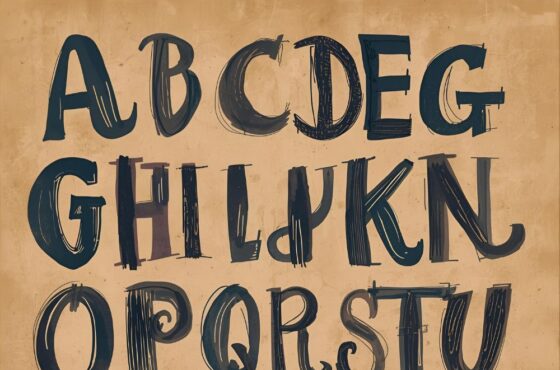 ABCDEG
GHILJKN
OPQRSTU